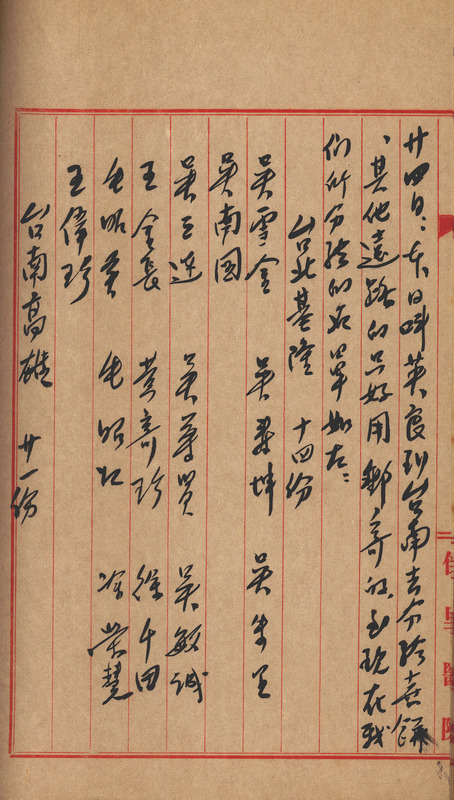 廿四日：本日叫英良到台南去分給喜餅
、其他遠路的只好用郵寄的到現在我
们所分給的名單如左：
台北基隆 十四份
吳雪金 吳 坤 吳朱
吳南図
吳三連 吳尊賢 吳敏誠
王金長 黃寿珍 徐千田
朱昭英 朱昭 涂榮慧
王偉珍
台南高雄 廿一份
醫院